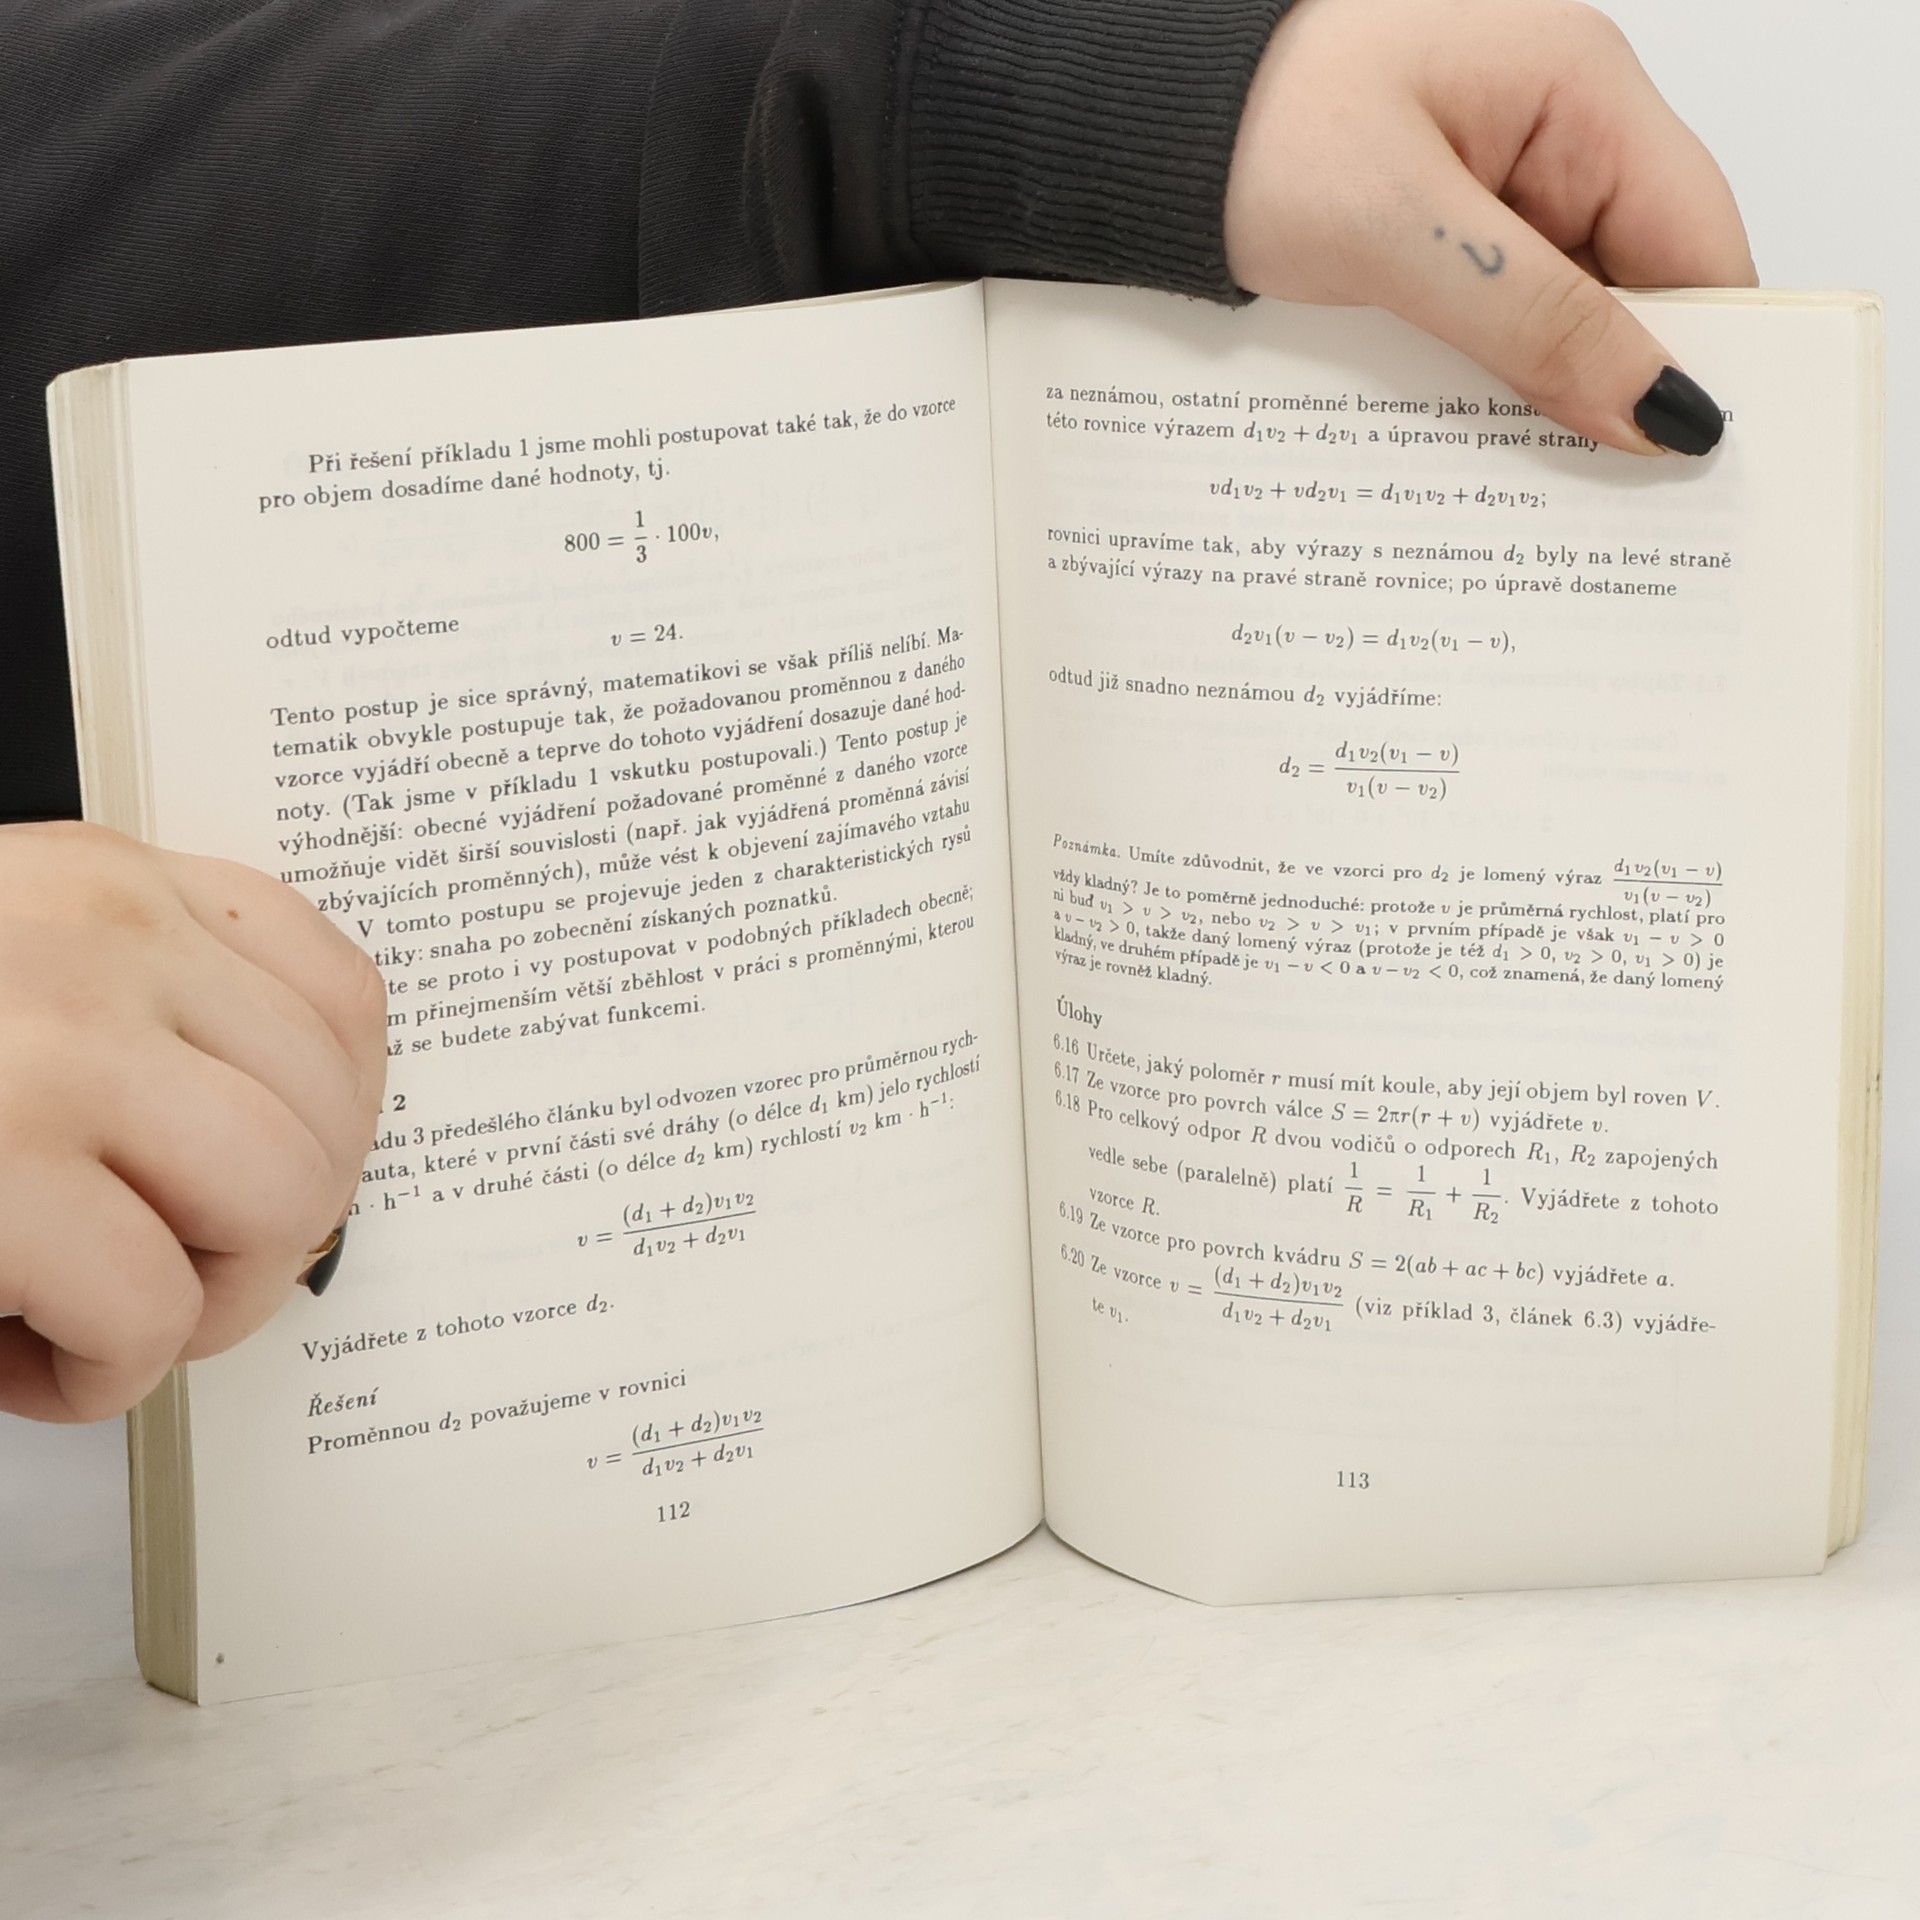 Při řešení příkladu 1 jsme mohli postupovat také tak, že do vzorce
pro objem dosadíme dané hodnoty, tj.
800 = 1/3 · 100v,
odtud vypočteme
v = 24.
Tento postup je sice správný, matematikovi se však příliš nelíbí. Ma-
tematik obvykle postupuje tak, že požadovanou proměnnou z daného
vzorce vyjádří obecně a teprve do tohoto vyjádření dosazuje dané hod-
noty. (Tak jsme v příkladu 1 vskutku postupovali.) Tento postup je
výhodnější: obecné vyjádření požadované proměnné z daného vzorce
umožňuje vidět širší souvislosti (např. jak vyjádřená proměnná závisí
zbývajících proměnných), může vést k objevení zajímavého vztahu
V tomto postupu se projevuje jeden z charakteristických rysů
tiky: snaha po zobecnění získaných poznatků.
te se proto i vy postupovat v podobných příkladech obecně;
m přinejmenším větší zběhlost v práci s proměnnými, kterou
ž se budete zabývat funkcemi.
2
adu 3 předešlého článku byl odvozen vzorec pro průměrnou rych-
auta, které v první části své dráhy (o délce d₁ km) jelo rychlostí
· h⁻¹ a v druhé části (o délce d₂ km) rychlostí v₂ km · h⁻¹:
v = (d₁ + d₂)v₁v₂ / d₁v₂ + d₂v₁
Vyjádřete z tohoto vzorce d₂.
Řešení
Proměnnou d₂ považujeme v rovnici
v = (d₁ + d₂)v₁v₂ / d₁v₂ + d₂v₁
112
za neznámou, ostatní proměnné bereme jako kons
této rovnice výrazem d₁v₂ + d₂v₁ a úpravou pravé strany
vd₁v₂ + vd₂v₁ = d₁v₁v₂ + d₂v₁v₂;
rovnici upravíme tak, aby výrazy s neznámou d₂ byly na levé straně
a zbývající výrazy na pravé straně rovnice; po úpravě dostaneme
d₂v₁(v − v₂) = d₁v₂(v₁ − v),
odtud již snadno neznámou d₂ vyjádříme:
d₂ = d₁v₂(v₁ − v) / v₁(v − v₂)
Poznámka. Umíte zdůvodnit, že ve vzorci pro d₂ je lomený výraz d₁v₂(v₁ − v) / v₁(v − v₂)
vždy kladný? Je to poměrně jednoduché: protože v je průměrná rychlost, platí pro
ni buď v₁ > v > v₂, nebo v₂ > v > v₁; v prvním případě je však v₁ − v > 0
a v − v₂ > 0, takže daný lomený výraz (protože je též d₁ > 0, v₂ > 0, v₁ > 0) je
kladný, ve druhém případě je v₁ − v < 0 a v − v₂ < 0, což znamená, že daný lomený
výraz je rovněž kladný.
Úlohy
6.16 Určete, jaký poloměr r musí mít koule, aby její objem byl roven V.
6.17 Ze vzorce pro povrch válce S = 2πr(r + v) vyjádřete v.
6.18 Pro celkový odpor R dvou vodičů o odporech R₁, R₂ zapojených
vedle sebe (paralelně) platí 1/R = 1/R₁ + 1/R₂. Vyjádřete z tohoto
vzorce R.
6.19 Ze vzorce pro povrch kvádru S = 2(ab + ac + bc) vyjádřete a.
6.20 Ze vzorce v = (d₁ + d₂)v₁v₂ / d₁v₂ + d₂v₁ (viz příklad 3, článek 6.3) vyjádře-
te v₁.
113